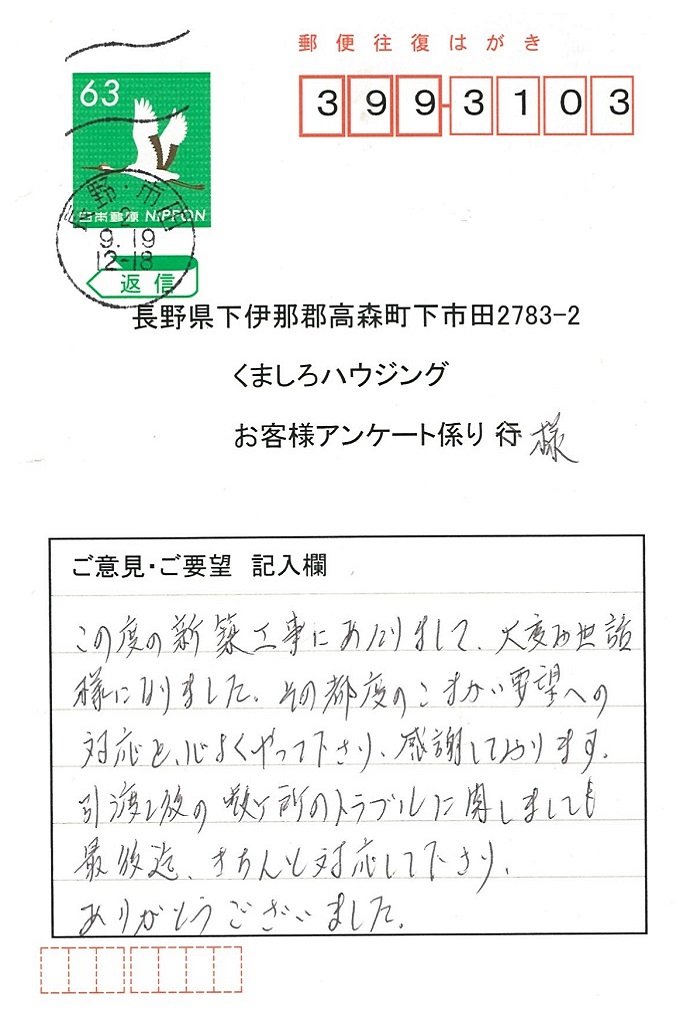 郵便往復はがき
63
399-3103
日本郵便 NIPPON
長野・市田
2
9.19
12-18
返信
長野県下伊那郡高森町下市田2783-2
くましろハウジング
お客様アンケート係り 行 様
ご意見・ご要望 記入欄
この度の新築工事にあたりまして、大変お世話
様になりました。その都度のこまかい要望への
対応と、心よくやって下さり、感謝しております。
引渡し後の数ヶ所のトラブルに関しましても
最後迄、きちんと対応して下さり、
ありがとうございました。